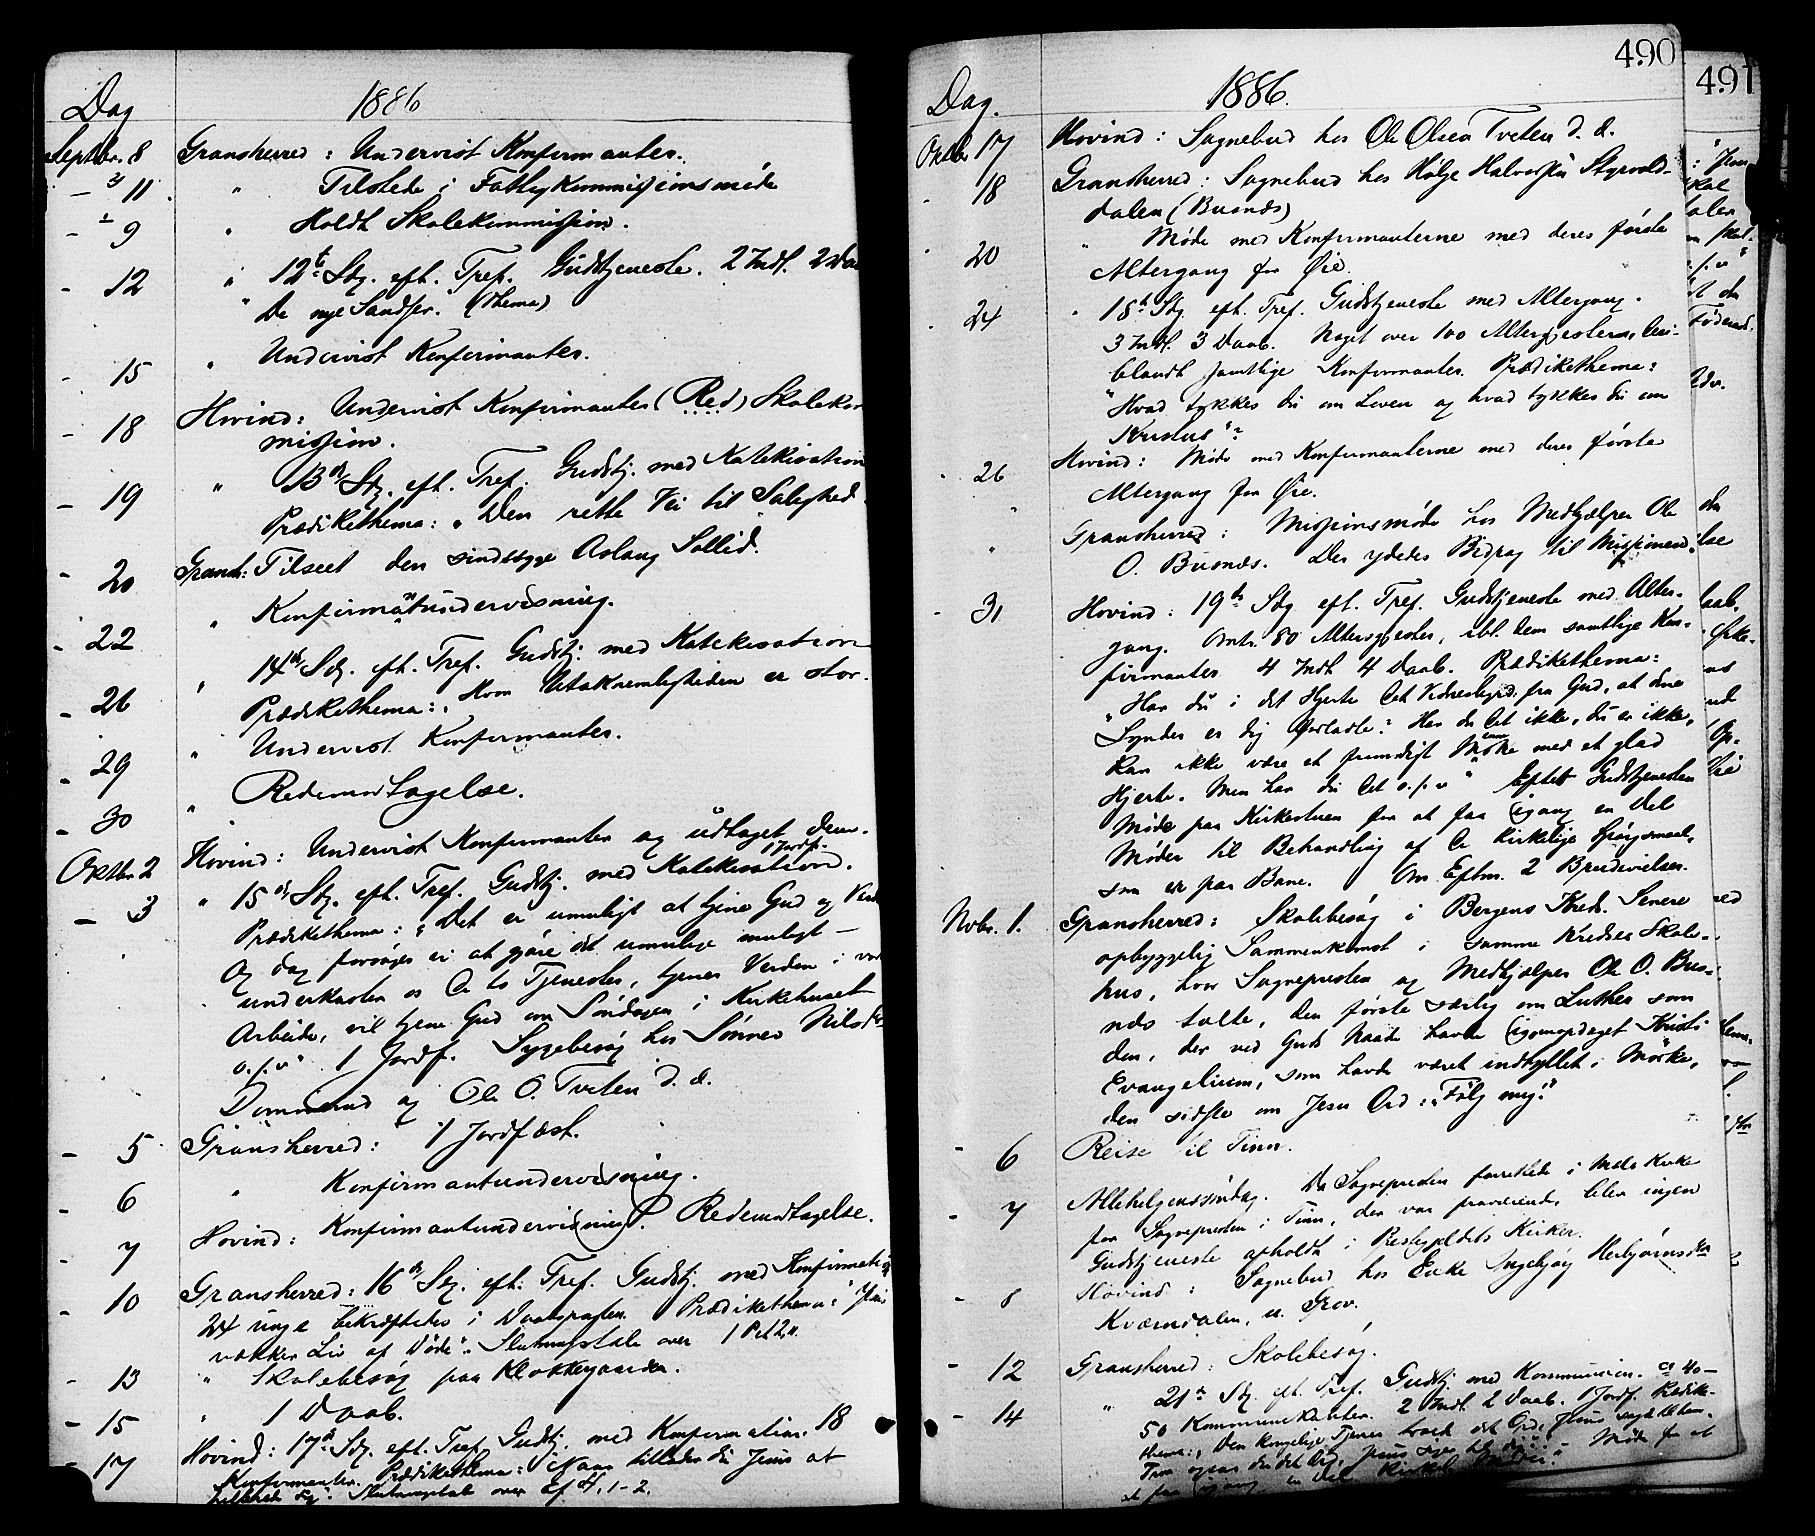 Dag 1886
Septbr. 8 Gransherred: Undervist Konfirmanter.
- 11 " Tilstede i Fattigkommissionsmøde
- 9 " Holdt Skolekommission.
- 12 " 12te Sdg. eft. Tref. Gudstjeneste. 2 Indl. 2 Daa
" De nye Sandser. (Thema)
- 15 " Undervist Konfirmanter.
- 18 Hovind: Undervist Konfirmanter (Red) Skolekom
mission.
- 19 " 13de Sdg. eft. Tref. Gudstj. med Katekisation
Prædikethema: „Den rette Vei til Salighed.
- 20 Gransh: Tilseet den sindssyge Aslaug Sollid.
- 22 " Konfirmantundervisning.
- 26 " 14de Sdg. eft. Tref. Gudstj. med Katekisation
Prædikethema: „Hvor Utaknemligheden er stor.
- 29 " Undervist Konfirmanter.
- 30 " Redeundtagelse.
Oktbr. 2 Hovind: Undervist Konfirmanter og udtaget dem.
- 3 " 15de Sdg. eft. Tref. Gudstj. med Katekisation. 1 Jordf.
Prædikethema: „Det er umuligt at tjene Gud og Verden
Og dog forsøges vi at gjøre det umulige muligt —
underkaster os to Tjenester, tjener Verden i vort
Arbeide, vil tjene Gud om Søndagen i Kirkehuset
o.s.v" 1 Jordf. Sygebesøg hos Sønnev Nilsd.
Dommerud og Ole O. Tveten d. æ.
- 5 Gransherred: 1 Jordfæst.
- 6 " Konfirmantundervisning.
- 7 Hovind: Konfirmantundervisning. Redeundtagelse.
- 10 Gransherred: 16de Sdg. eft. Tref. Gudstj. med Konfirmation
24 unge bekræftedes i Daabspagten. Prædikethema: "Jesus
vækker Liv af Døde". Slutningstale over 1 Pet 2,11.
- 13 " Skolebesøg paa Klokkergaarden.
- 15 " 1 Daab.
- 17 Hovind: 17de Sdg. eft. Tref. Gudstj. med Konfirmation. 18
Konfirmanter. Prædikethema: „Naar tillader du Jesus at
Slutningstale over Ef 4, 1-2.
490
Dag. 1886.
Oktbr 17 Hovind: Sognebud hos Ole Olsen Tveten d. æ.
- 18 Gransherred: Sognebud hos Helge Halvorsen Styrvold-
dalen (Busnæs)
- 20 " Møde med Konfirmanterne med deres første
Altergang for Øie.
- 24 " 18de Sdg. eft. Tref. Gudstjeneste med Altergang.
3 Indl. 3 Daab. Noget over 100 Altergjester,
blandt samtlige Konfirmanter. Prædikethema:
"Hvad tykkes du om Loven og hvad tykkes du om
Kristus"?
- 26 Hovind: Møde med Konfirmanterne med deres første
Altergang for Øie.
" Gransherred: Missionsmøde hos Medhjælper Ole
O. Busnæs. Der ydedes Bidrag til Missionen.
- 31 Hovind: 19de Sdg. eft. Tref. Gudstjeneste med Alter-
gang. Omtr. 80 Altergjester, ibl. dem samtlige Kon-
firmanter. 4 Indl. 4 Daab. Prædikethema:
„Har du i dit Hjerte det Vidnesbyrd fra Gud, at dine
Synder er dig forladte? Har du det ikke, du er ikke,
kan ikke være et fremdigt Menneske med et glad
Hjerte. Men har du det o.s.v" Efter Gudstjenesten
Møde paa Kirkestuen for at faa igang en Del
Møder til Behandling af de kirkelige Spørgsmaal,
som er paa Bane. Om Eftm. 2 Brudevielser.
Novbr. 1. Gransherred: Skolebesøg i Bergens Kreds. Senere
opbyggelig Sammenkomst i samme Kredses Skole-
hus, hvor Sognepresten og Medhjælper Ole O. Bus-
næs talte, den første særlig om Luther som
den, der ved Guds Naade havde igjenopdaget Kristi
Evangelium, som havde været indhyllet i Mørke,
den sidste om Jesu Ord: „Følg mig."
- 6 Reise til Tinn.
- 7 Allehelgenssøndag. Da Sognepresten forrettede i Mæls Kirke
for Sognepresten i Tinn, der var fraværende, blev ingen
Gudstjeneste afholdt i Prestegjeldets Kirker.
- 8 Hovind: Sognebud hos Enke Ingebjørg Herbjørnsdtr
Kværndalen, u. Grov.
- 12 Gransherred: Skolebesøg.
- 14 " 21de Sdg. eft. Tref. Gudstj. med Kommunion. ca 40-
50 Kommunikanter. 2 Indl. 2 Daab. 1 Jordf. Prædike-
thema: „Den kongelige Tjener troede det Ord, Jesus sagde til ham.
Tror ogsaa du det Ord, Jesus siger til dig?" Møde for at
faa igang en Del kirkelige Møder.
491